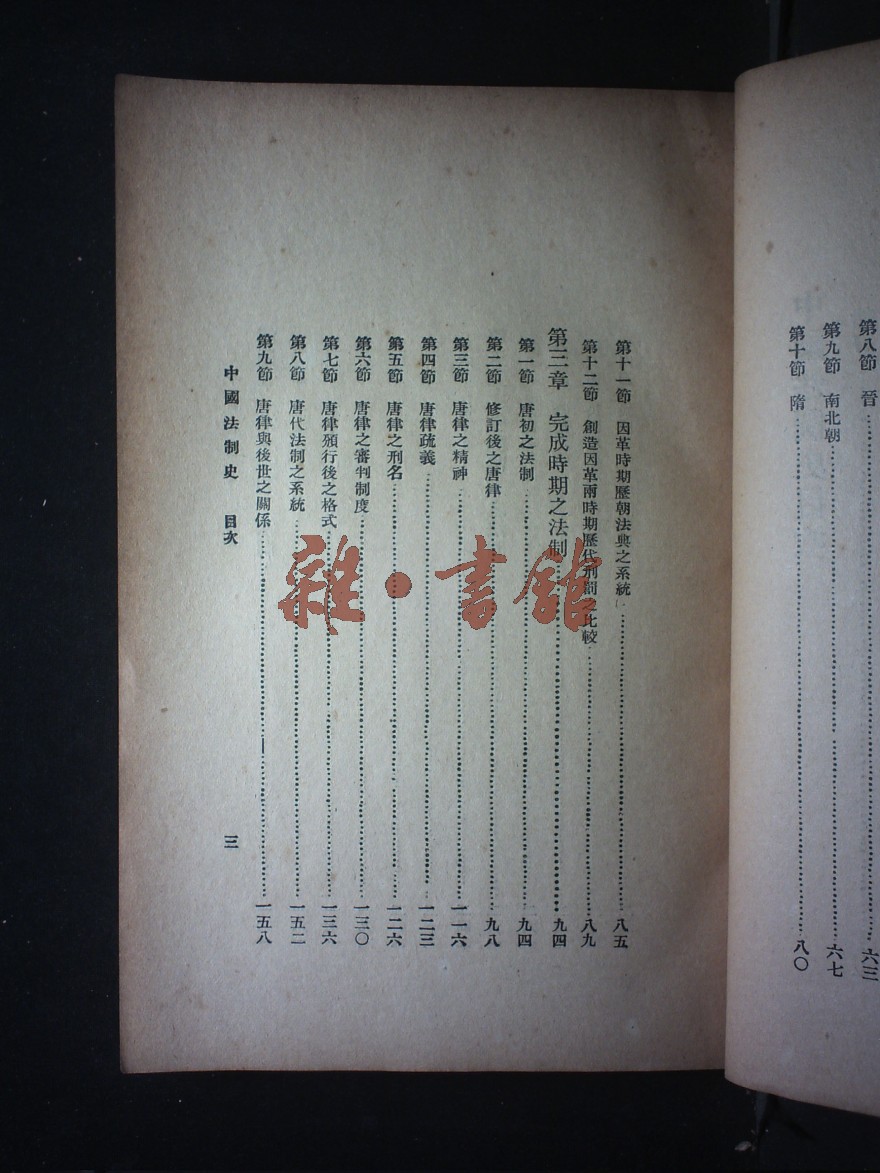 第八節　晉……六三
第九節　南北朝……六七
第十節　隋……八〇
第十一節　因革時期歷朝法典之系統……八五
第十二節　創造因革兩時期歷代刑罰之比較……八九
第三章　完成時期之法制……九四
第一節　唐初之法制……九四
第二節　修訂後之唐律……九八
第三節　唐律之精神……一一六
第四節　唐律疏義……一二三
第五節　唐律之刑名……一二六
第六節　唐律之審判制度……一三〇
第七節　唐律頒行後之格式……一三六
第八節　唐代法制之系統……一五二
第九節　唐律與後世之關係……一五八
中國法制史　目次　三
雜·書館